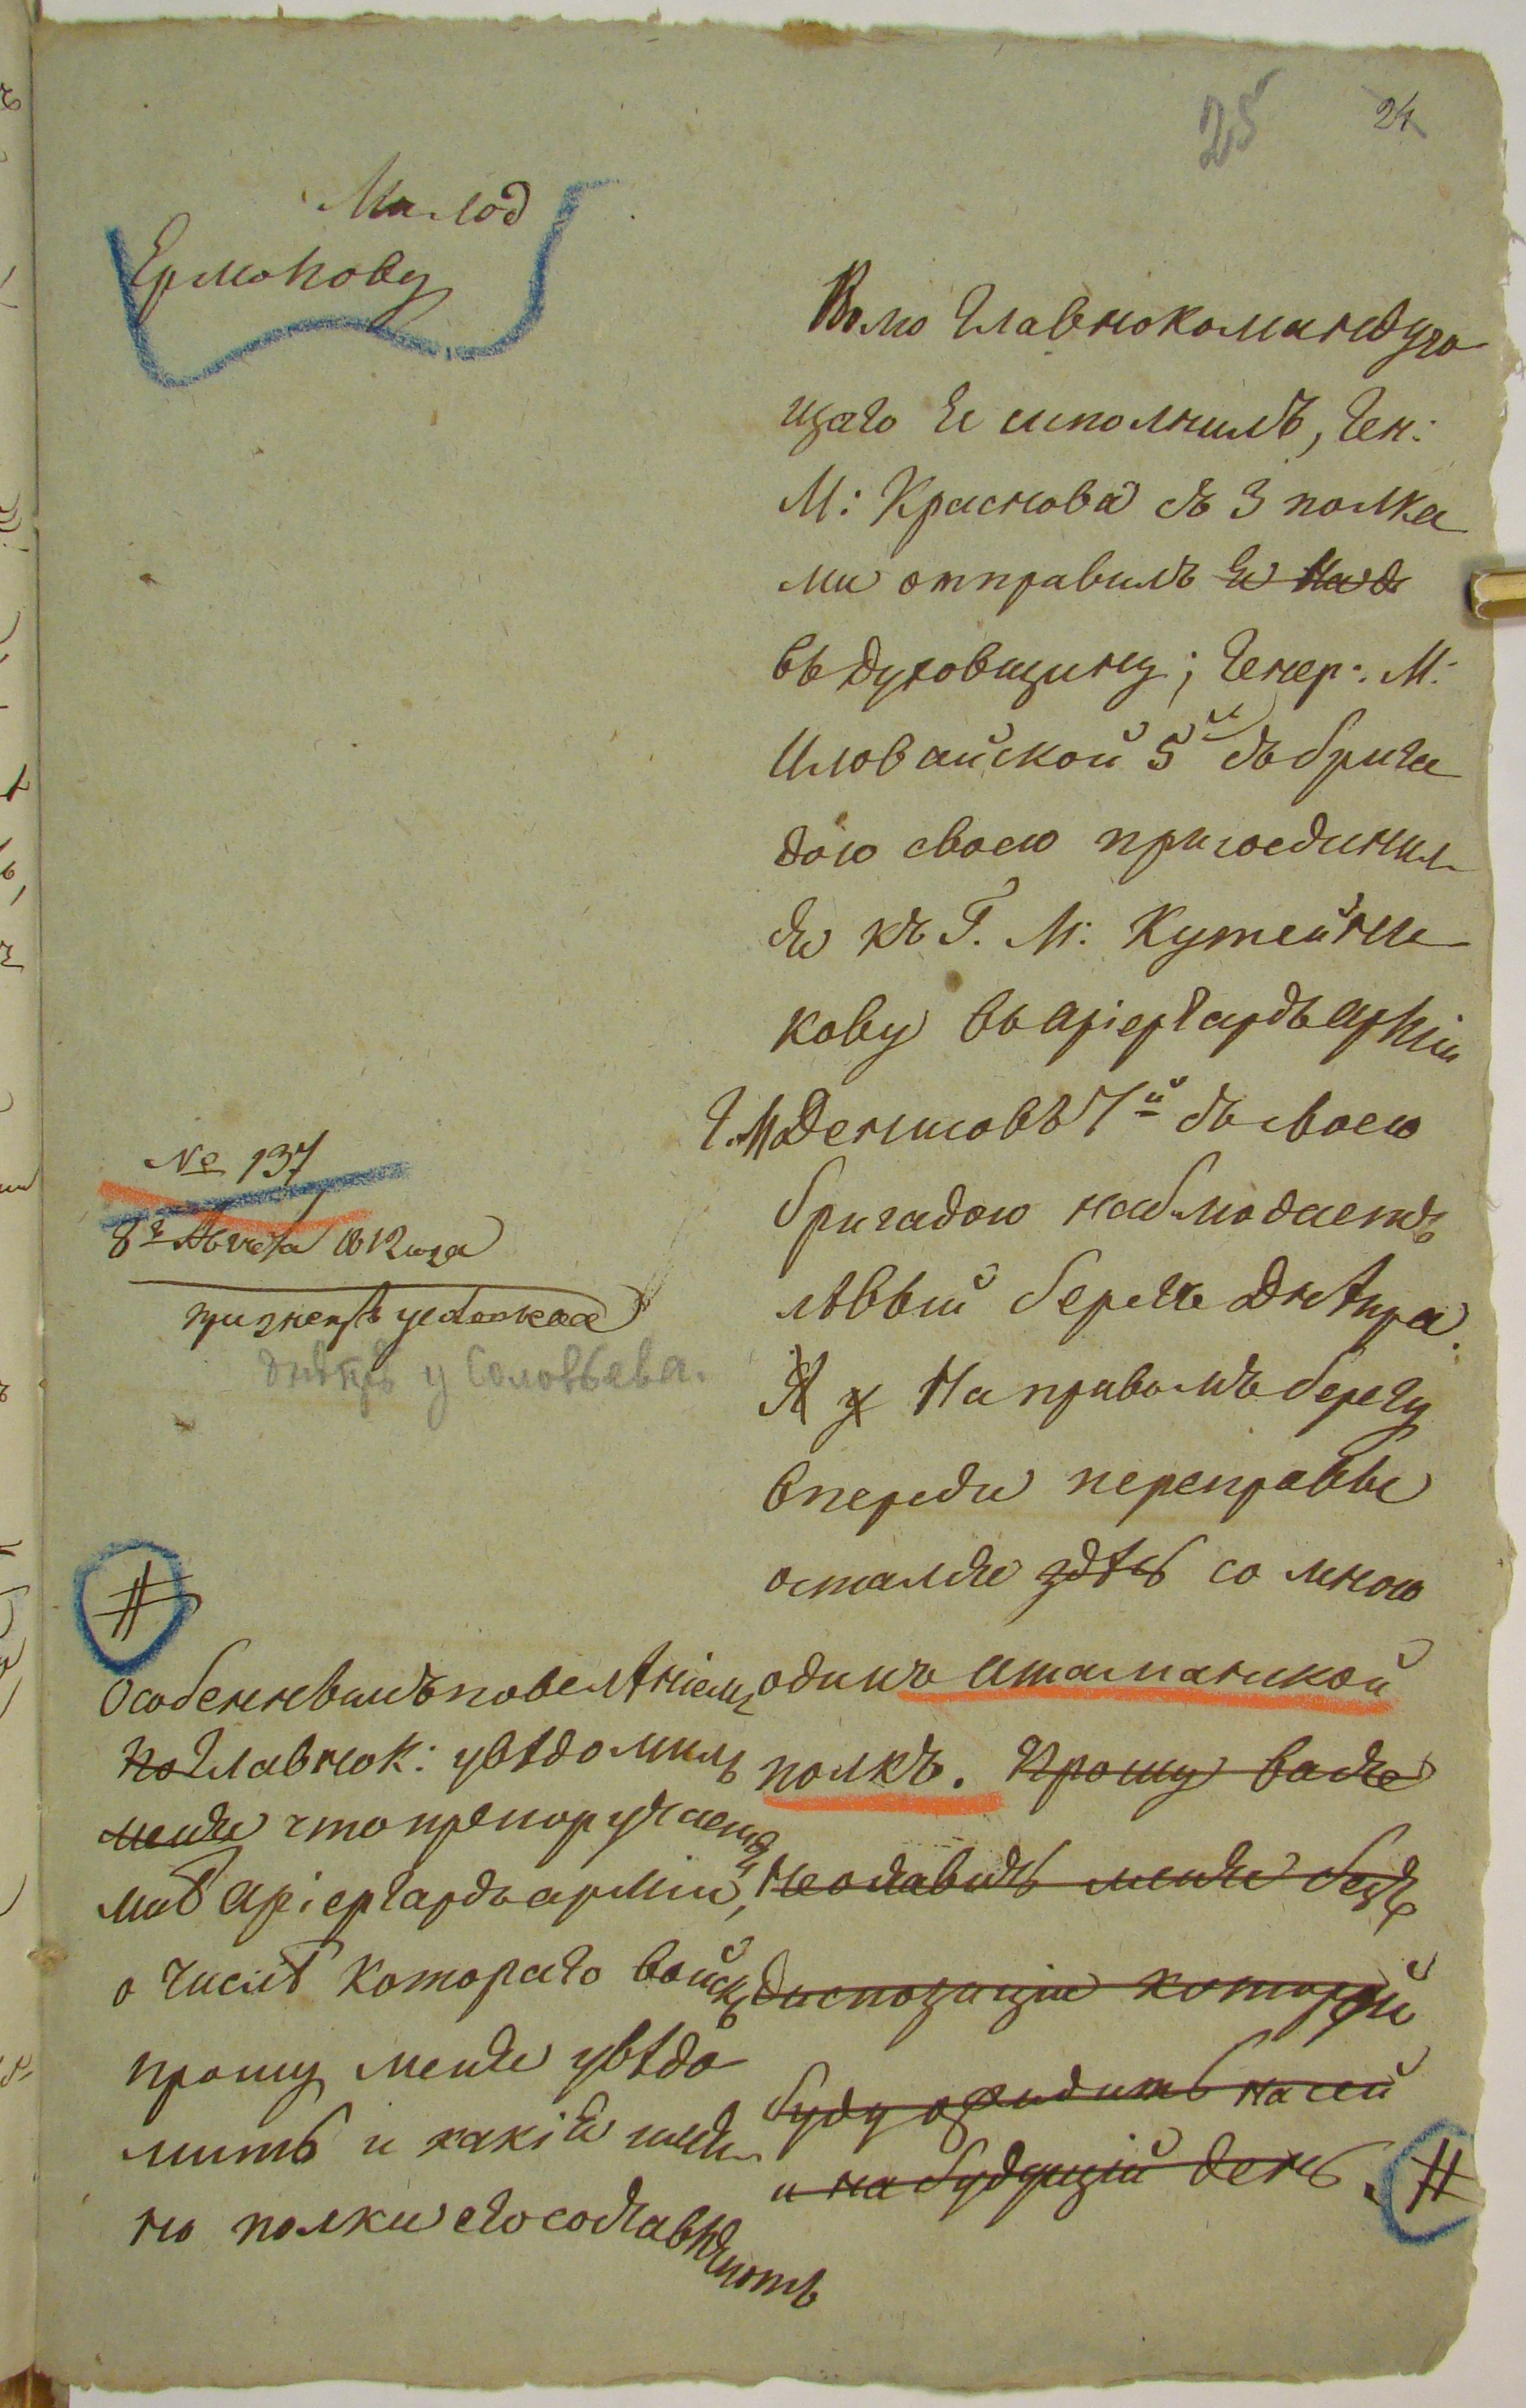 25 24
Милод
Ермолову
Волю Главнокомандую
щаго я исполнилъ, Ген:
М: Краснова съ 3 полка
ми отправилъ
въ Духовщину; Генер: М:
Иловайской 5й съ брига
дою своею присоединил
ся къ Г. М: Кутейни
кову въ аріергардъ арміи
Г. М Денисовъ 7й съ своею
бригадою наблюдаетъ
лѣвый берегъ Днѣпра.
Я у На правомъ берегу
впереди переправы
остался здѣсь со мною
одинъ Атаманской
полкъ. Прошу васъ
не оставить меня безъ
диспозиціи которой
буду ожидать на сей
и на будущій день. #
№ 137
8го Августа 1812 года
Днѣпръ у Соловьева.
#
Особеннымъ повелѣніемъ
Главнок: увѣдомилъ
меня что препоручаетъ
мнѣ аріергардъ арміи,
о числѣ котораго войскъ
прошу меня увѣдо
мить и какія имен
но полки его составляютъ